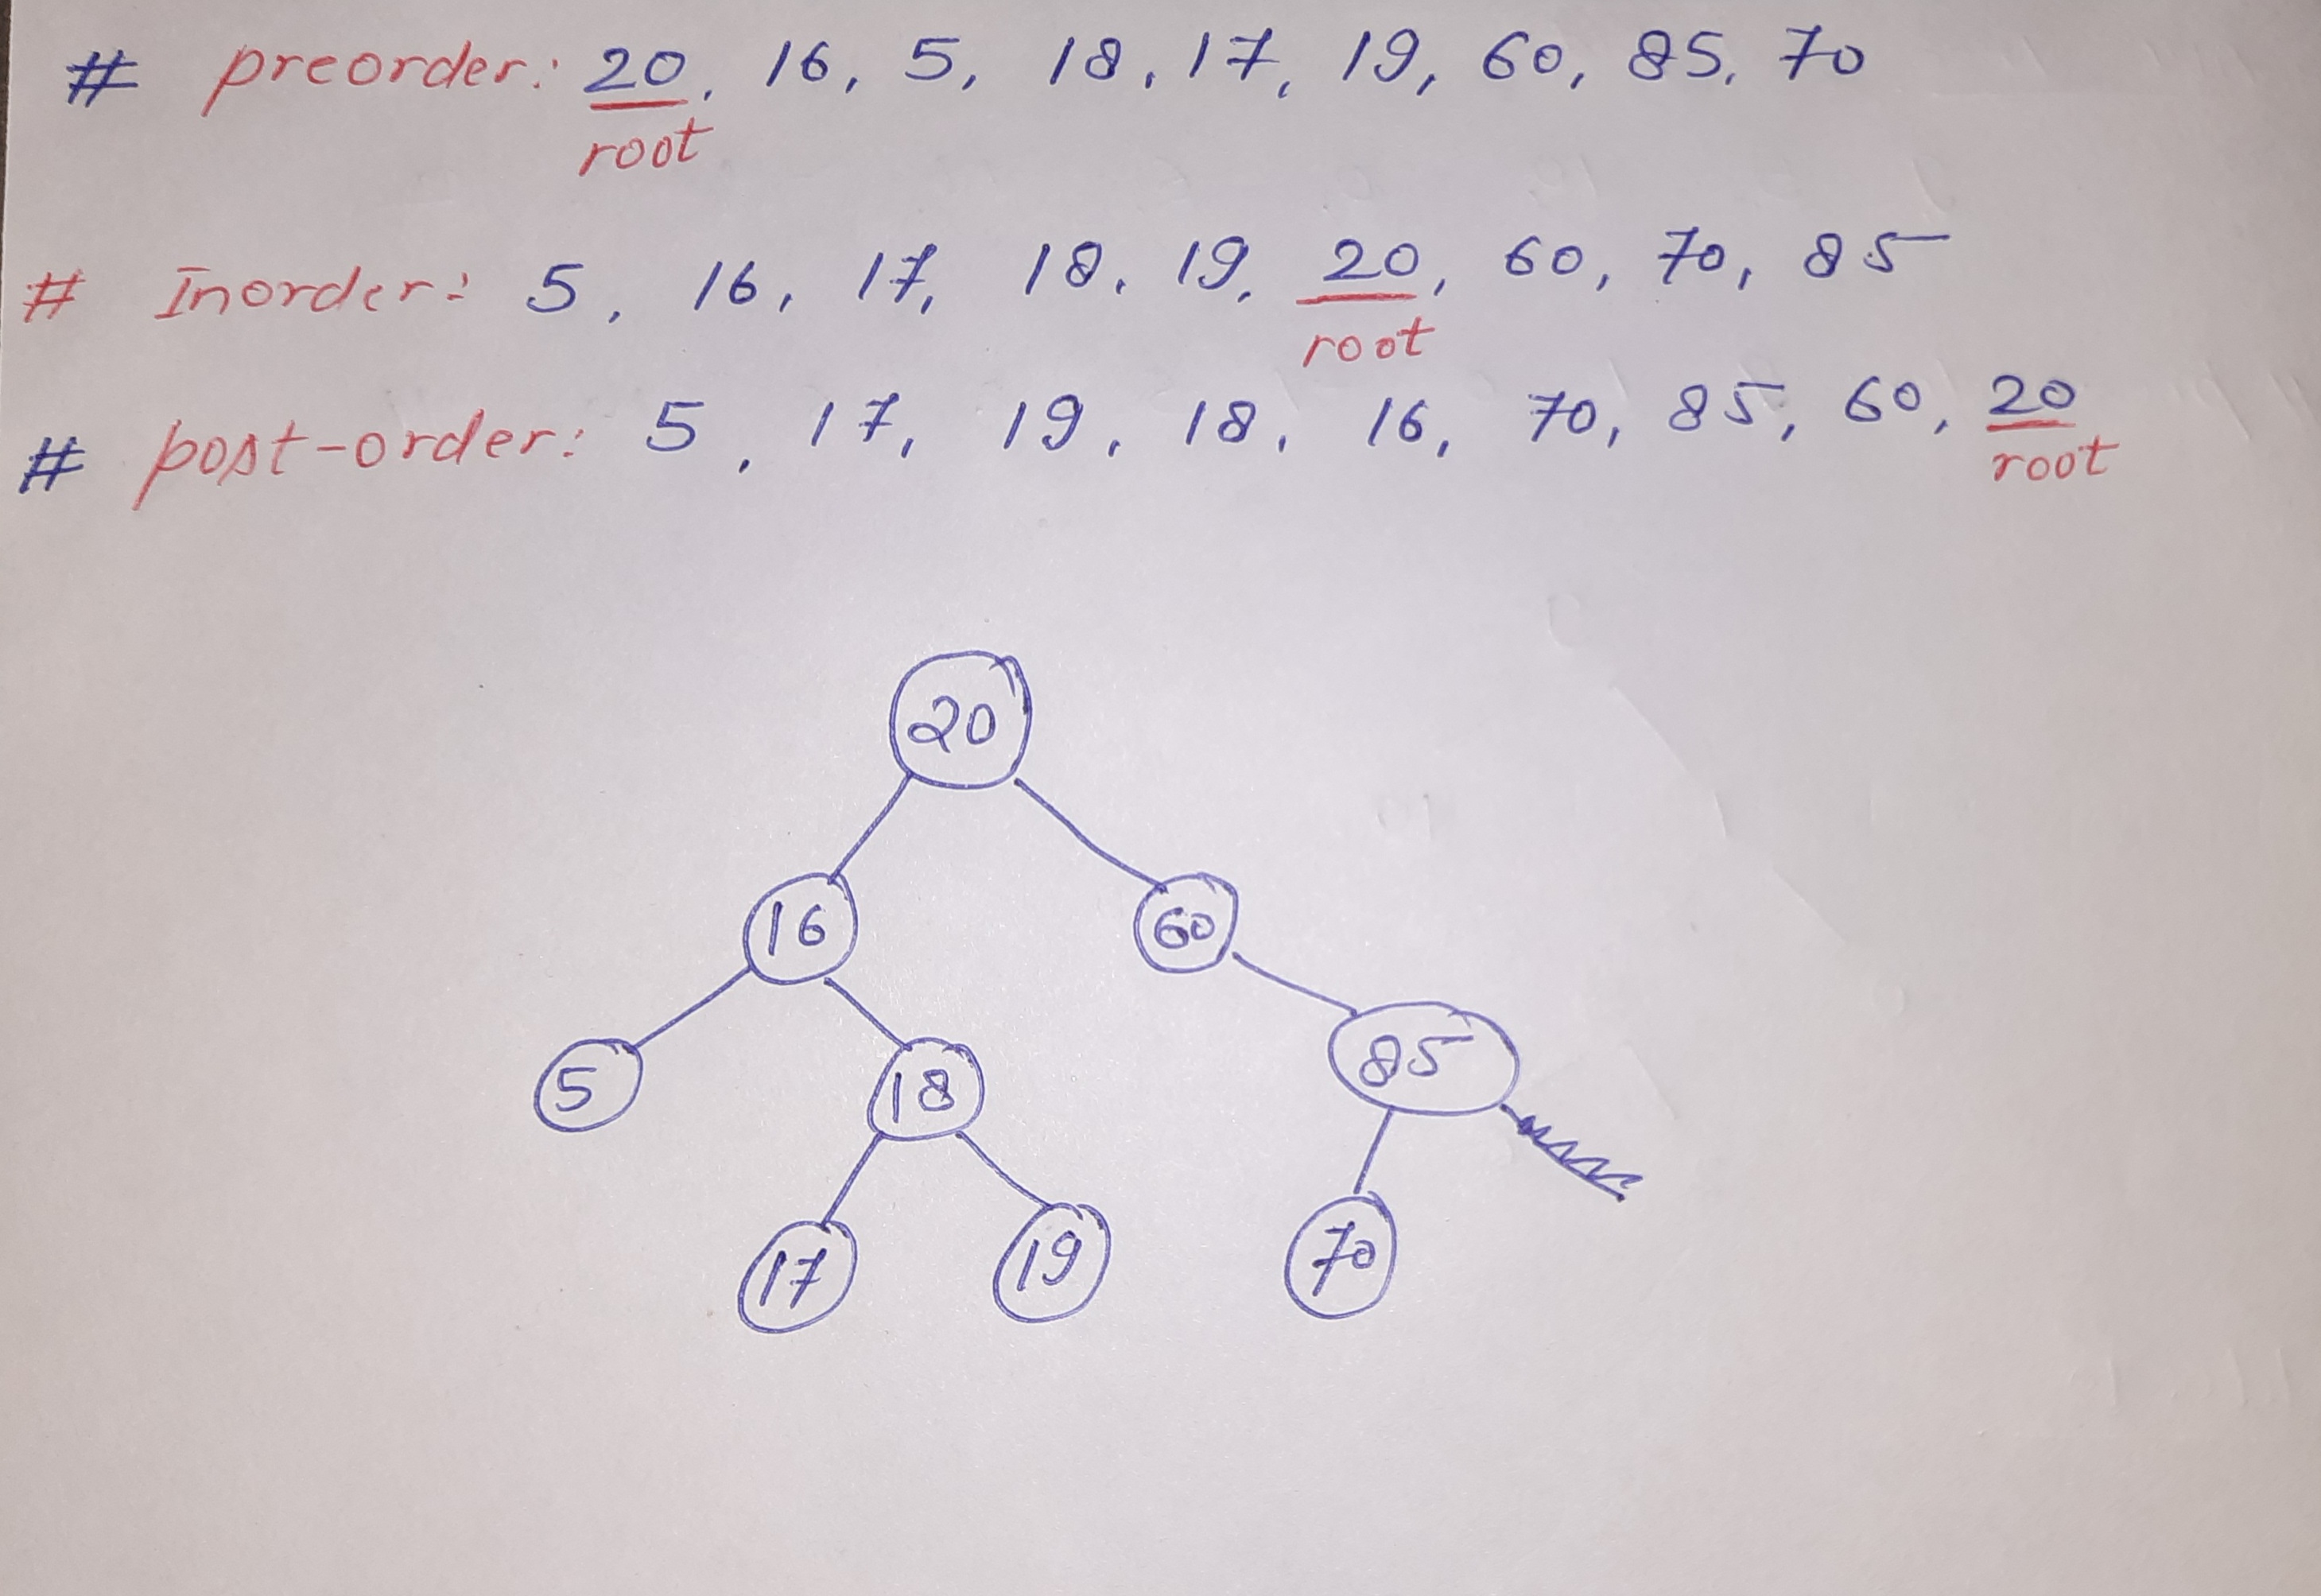 # preorder: 20, 16, 5, 18, 17, 19, 60, 85, 70
root
# Inorder: 5, 16, 17, 18, 19, 20, 60, 70, 85
root
# post-order: 5, 17, 19, 18, 16, 70, 85, 60, 20
root
20
16 60
5 18 85
17 19 70